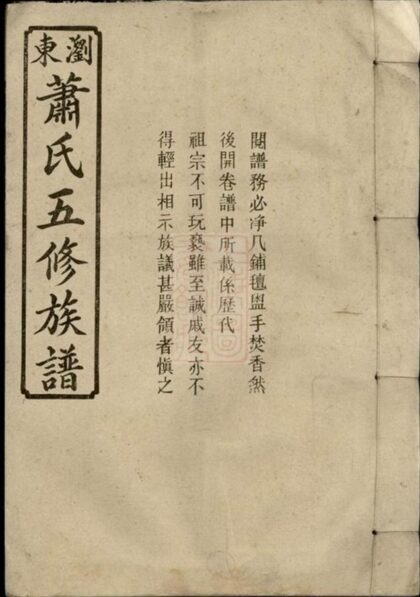 瀏東
蕭氏五修族譜
閱譜務必净几鋪毡盥手焚香然
後開卷譜中所載係歷代
祖宗不可玩褻雖至誠戚友亦不
得輕出相示族議甚嚴領者慎之